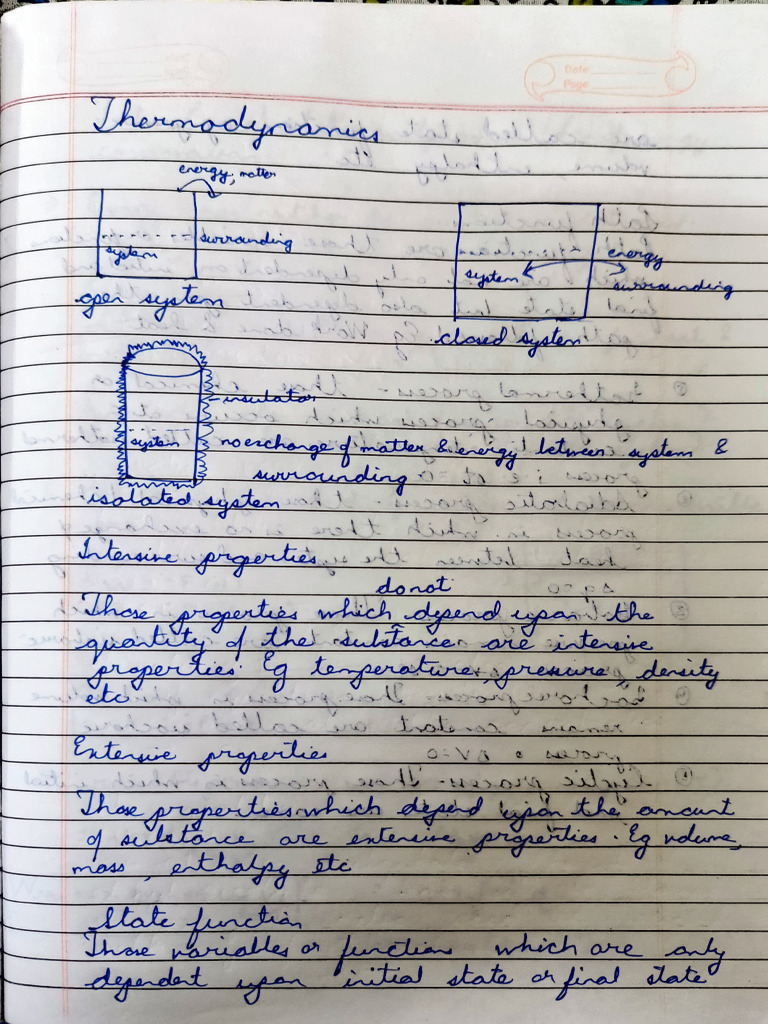 Date
Page
Thermodynamics
energy, matter
system
surrounding
open system
system
energy
surrounding
closed system
insulator
system
no exchange of matter & energy between system &
surrounding
isolated system
Intensive properties
do not
Those properties which depend upon the
quantity of the substance are intensive
properties. Eg temperature, pressure, density
etc
Extensive properties
Those properties which depend upon the amount
of substance are extensive properties. Eg volume,
mass, enthalpy etc
State function
Those variables or function which are only
dependent upon initial state or final state